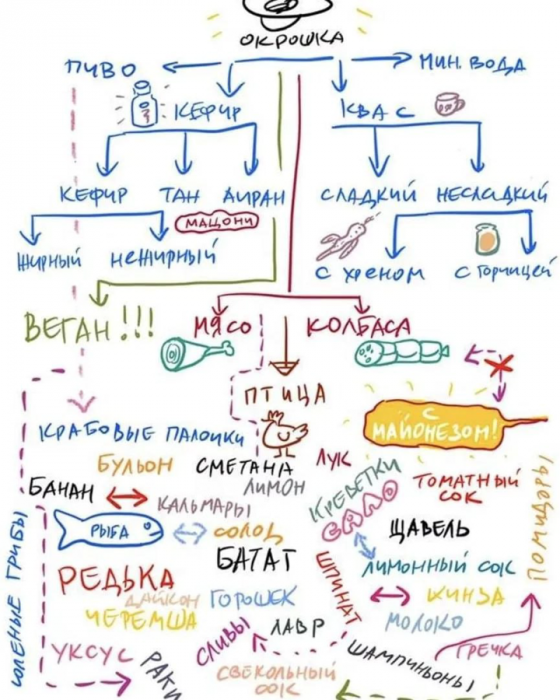 ОКРОШКА
ПИВО
МИН. ВОДА
КЕФИР
КВАС
КЕФИР ТАН АЙРАН
СЛАДКИЙ НЕСЛАДКИЙ
МАЦОНИ
ЖИРНЫЙ НЕЖИРНЫЙ
С ХРЕНОМ С ГОРЧИЦЕЙ
ВЕГАН!!!
МЯСО КОЛБАСА
ПТИЦА
С
МАЙОНЕЗОМ!
КРАБОВЫЕ ПАЛОЧКИ
БУЛЬОН СМЕТАНА ЛУК
БАНАН ЛИМОН
КАЛЬМАРЫ
КРЕВЕТКИ
САЛО
ТОМАТНЫЙ
СОК
ПОМИДОРЫ
РЫБА СОЛОД
ЩАВЕЛЬ
БАТАТ
ЛИМОННЫЙ СОК
СОЛЕНЫЕ ГРИБЫ
РЕДЬКА
ДАЙКОН ГОРОШЕК
ШПИНАТ
КИНЗА
ЧЕРЕМША
МОЛОКО
СЛИВЫ ЛАВР
УКСУС
РАКИ
ШАМПИНЬОНЫ
ГРЕЧКА
СВЕКОЛЬНЫЙ
СОК